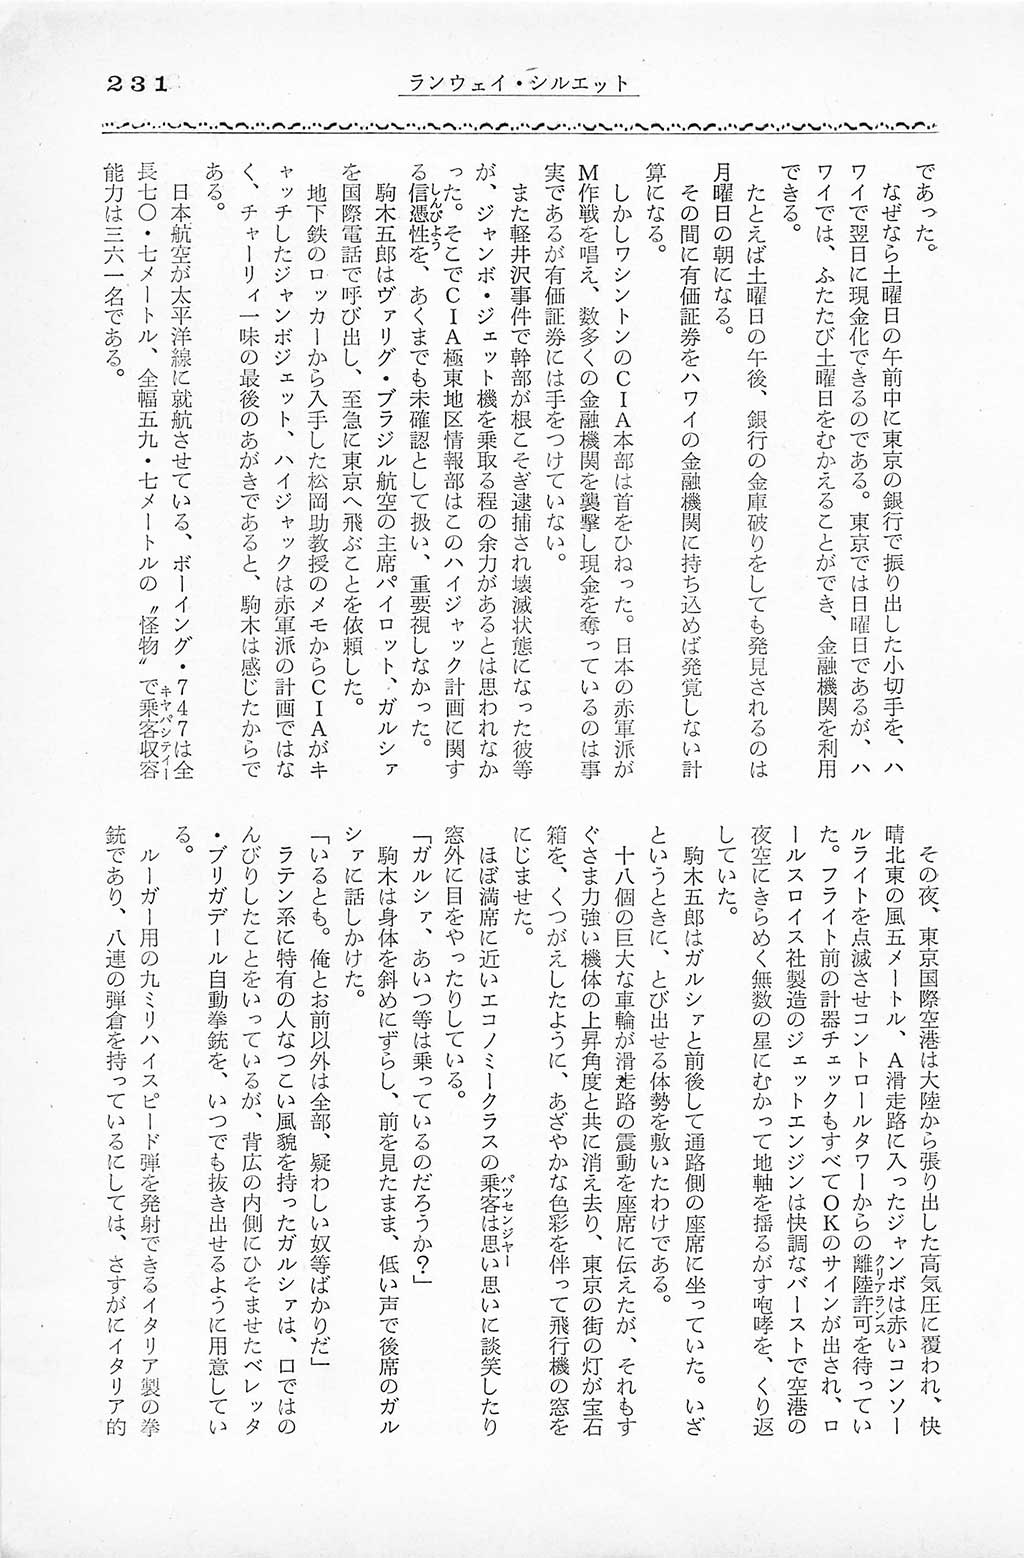 231
ランウェイ・シルエット
であった。
なぜなら土曜日の午前中に東京の銀行で振り出した小切手を、ハ
ワイで翌日に現金化できるのである。東京では日曜日であるが、ハ
ワイでは、ふたたび土曜日をむかえることができ、金融機関を利用
できる。
たとえば土曜日の午後、銀行の金庫破りをしても発見されるのは
月曜日の朝になる。
その間に有価証券をハワイの金融機関に持ち込めば発覚しない計
算になる。
しかしワシントンのCIA本部は首をひねった。日本の赤軍派が
M作戦を唱え、数多くの金融機関を襲撃し現金を奪っているのは事
実であるが有価証券には手をつけていない。
また軽井沢事件で幹部が根こそぎ逮捕され壊滅状態になった彼等
が、ジャンボ・ジェット機を乗取る程の余力があるとは思われなか
った。そこでCIA極東地区情報部はこのハイジャック計画に関す
る信憑性しんぴようを、あくまでも未確認として扱い、重要視しなかった。
駒木五郎はヴァリグ・ブラジル航空の主席パイロット、ガルシァ
を国際電話で呼び出し、至急に東京へ飛ぶことを依頼した。
地下鉄のロッカーから入手した松岡助教授のメモからCIAがキ
ャッチしたジャンボジェット、ハイジャックは赤軍派の計画ではな
く、チャーリィ一味の最後のあがきであると、駒木は感じたからで
ある。
日本航空が太平洋線に就航させている、ボーイング・747は全
長七〇・七メートル、全幅五九・七メートルの〝怪物〟で乗客収容キャパシティー
能力は三六一名である。
その夜、東京国際空港は大陸から張り出した高気圧に覆われ、快
晴北東の風五メートル、A滑走路に入ったジャンボは赤いコンソー
ルライトを点滅させコントロールタワーからの離陸許可クリアランスを待ってい
た。フライト前の計器チェックもすべてOKのサインが出され、ロ
ールスロイス社製造のジェットエンジンは快調なバーストで空港の
夜空にきらめく無数の星にむかって地軸を揺るがす咆哮を、くり返
していた。
駒木五郎はガルシァと前後して通路側の座席に坐っていた。いざ
というときに、とび出せる体勢を敷いたわけである。
十八個の巨大な車輪が滑走路の震動を座席に伝えたが、それもす
ぐさま力強い機体の上昇角度と共に消え去り、東京の街の灯が宝石
箱を、くつがえしたように、あざやかな色彩を伴って飛行機の窓を
にじませた。
ほぼ満席に近いエコノミークラスの乗客パツセンジャーは思い思いに談笑したり
窓外に目をやったりしている。
「ガルシァ、あいつ等は乗っているのだろうか?」
駒木は身体を斜めにずらし、前を見たまま、低い声で後席のガル
シァに話しかけた。
「いるとも。俺とお前以外は全部、疑わしい奴等ばかりだ」
ラテン系に特有の人なつこい風貌を持ったガルシァは、口ではの
んびりしたことをいっているが、背広の内側にひそませたベレッタ
・ブリガデール自動拳銃を、いつでも抜き出せるように用意してい
る。
ルーガー用の九ミリハイスピード弾を発射できるイタリア製の拳
銃であり、八連の弾倉を持っているにしては、さすがにイタリア的